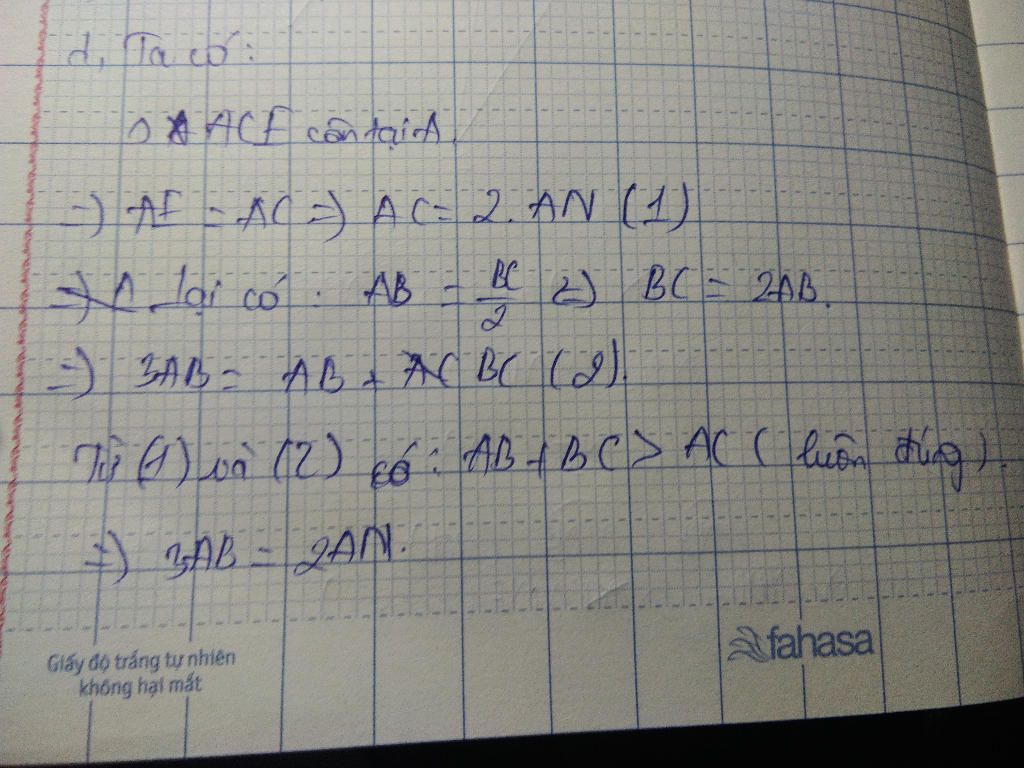 d, Ta có:
Δ ACE cân tại A.
=) AE = AC =) AC = 2. AN (1)
lại có : AB = BC/2 (=) BC = 2AB.
=) 3AB = AB + BC (2).
Từ (1) và (2) có : AB + BC > AC ( luôn đúng).
=) 3AB = 2AN.
Giấy độ trắng tự nhiên
không hại mắt
fahasa